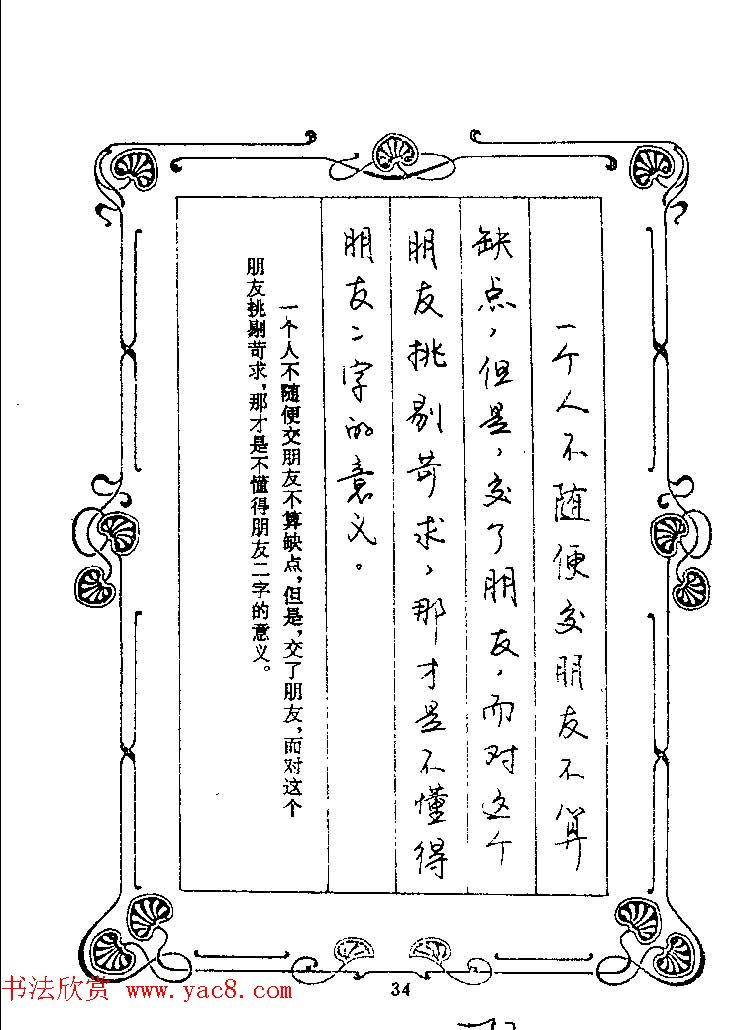 一个人不随便交朋友不算
缺点，但是，交了朋友，而对这个
朋友挑剔苛求，那才是不懂得
朋友二字的意义。
一个人不随便交朋友不算缺点，但是，交了朋友，而对这个
朋友挑剔苛求，那才是不懂得朋友二字的意义。
34
书法欣赏 www.yac8.com